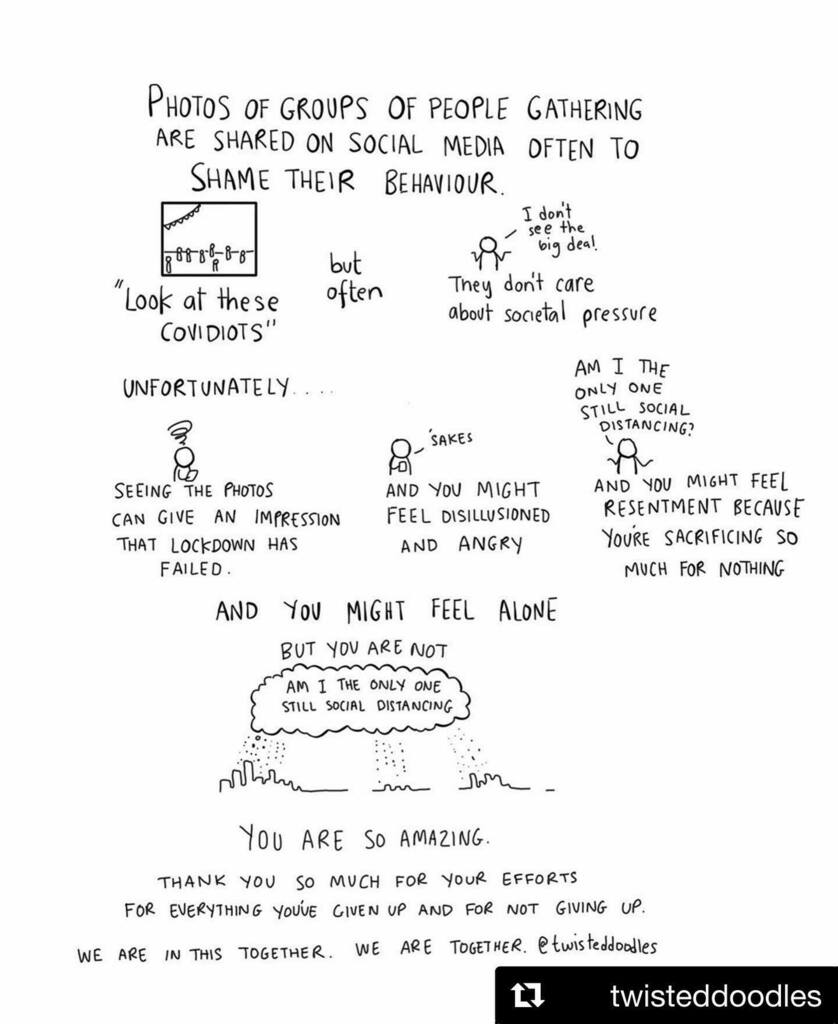 PHOTOS OF GROUPS OF PEOPLE GATHERING
ARE SHARED ON SOCIAL MEDIA OFTEN TO
SHAME THEIR BEHAVIOUR.
"Look at these
COVIDIOTS"
but
often
I don't
see the
big deal!
They don't care
about societal pressure
UNFORTUNATELY....
SEEING THE PHOTOS
CAN GIVE AN IMPRESSION
THAT LOCKDOWN HAS
FAILED.
'SAKES
AND YOU MIGHT
FEEL DISILLUSIONED
AND ANGRY
AM I THE
ONLY ONE
STILL SOCIAL
DISTANCING?
AND YOU MIGHT FEEL
RESENTMENT BECAUSE
YOU'RE SACRIFICING SO
MUCH FOR NOTHING
AND YOU MIGHT FEEL ALONE
BUT YOU ARE NOT
AM I THE ONLY ONE
STILL SOCIAL DISTANCING
YOU ARE SO AMAZING.
THANK YOU SO MUCH FOR YOUR EFFORTS
FOR EVERYTHING YOU'VE GIVEN UP AND FOR NOT GIVING UP.
WE ARE IN THIS TOGETHER. WE ARE TOGETHER. @twisteddoodles
twisteddoodles